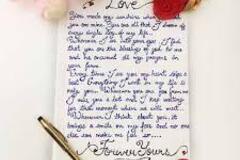 Love
You make my sunshine when I
you are mine. You are all that I dream of
every single day of my life...
Whenever I see into your eyes I feel
that you are the blessings of god to me
and he answered all my prayers in
your form.
Every time I see you my heart skips a
beat. Everything I want in my
only you. Whenever you are far from me
I miss you a lot and I keep waiting
you
Whenever I think about you, it
brings a smile on my face and no one
else can make me feel so....
Forever Yours